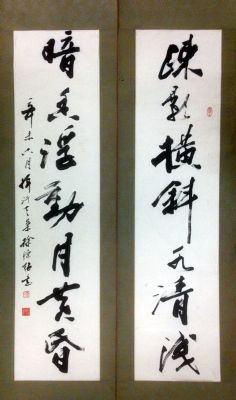 疎影横斜水清浅
暗香浮動月黄昏
辛未六月